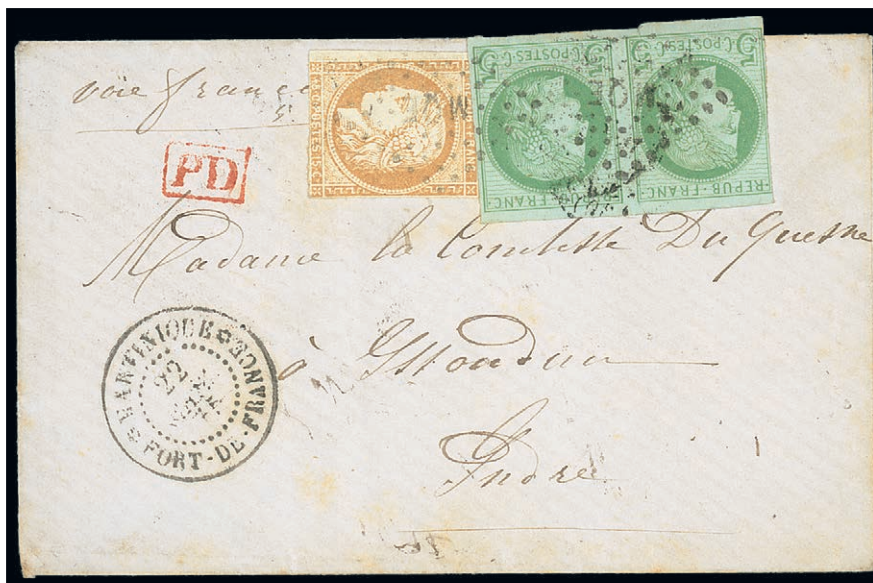 voie france
PD
5 C·POSTES·C 5
5 C·POSTES·C 5
FRANC
REPUB·FRANC
M
Madame la Comtesse Du Quesne
à Issoudun
Indre
MARTINIQUE
22
FORT-DE-FRANCE